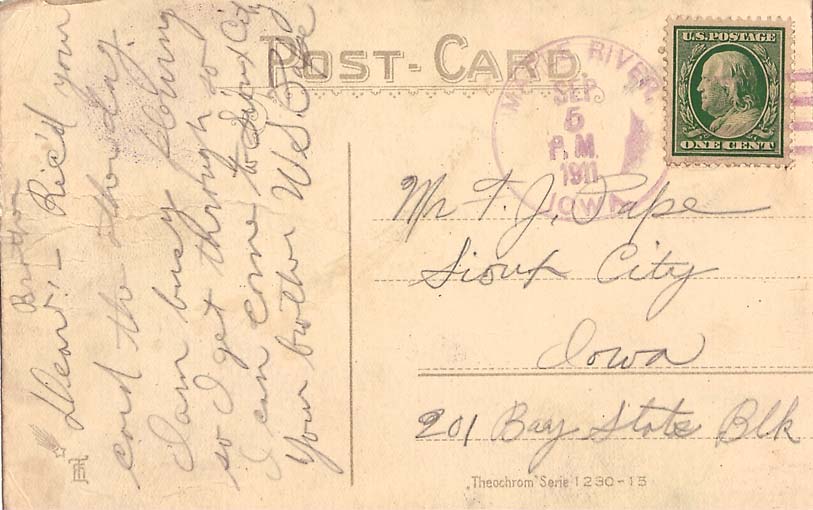 POST-CARD
U.S. POSTAGE
ONE CENT
RIVER,
SEP
5
P.M.
1911
IOWA
Brother
Dear:- Rec'd your
card the other day.
I am busy plowing
so I get through so
I can come to Sioux City
Your brother WS Pape
Mr T. J. Pape
Sioux City
Iowa
201 Bay State Blk
"Theochrom" Serie 1230-15